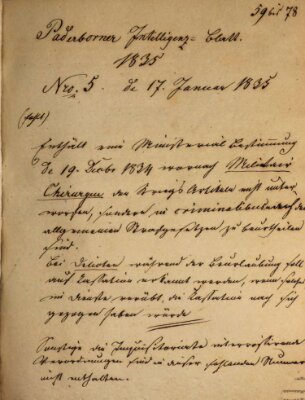 59 bis 78
Paderborner Intelligenz-Blatt.
1835
Nro. 5. de 17. Januar 1835
(fehlt)
Enthält eine Ministerial Bestimmung
de 19. Decbr 1834 wornach Militair
Chirurgen den Kriegs Artikeln nicht unter-
worfen, sondern in criminalibus nach den
allgemeinen Strafgesetzen zu beurtheilen
sind.
Bei Delicten während der Beurlaubung soll
auf Cassation erkannt werden, wenn solche
im Dienste verübt, die Cassation nach sich
gezogen haben würde
Sonstige die Inquisitoriate interessirende
Verordnungen sind in dieser fehlenden Numer
nicht enthalten.